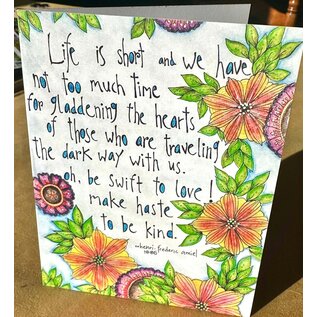 Life is short and we have
not too much time
for gladdening the hearts
of those who are traveling
the dark way with us.
oh, be swift to love!
make haste
to be kind.
henri frederic amiel